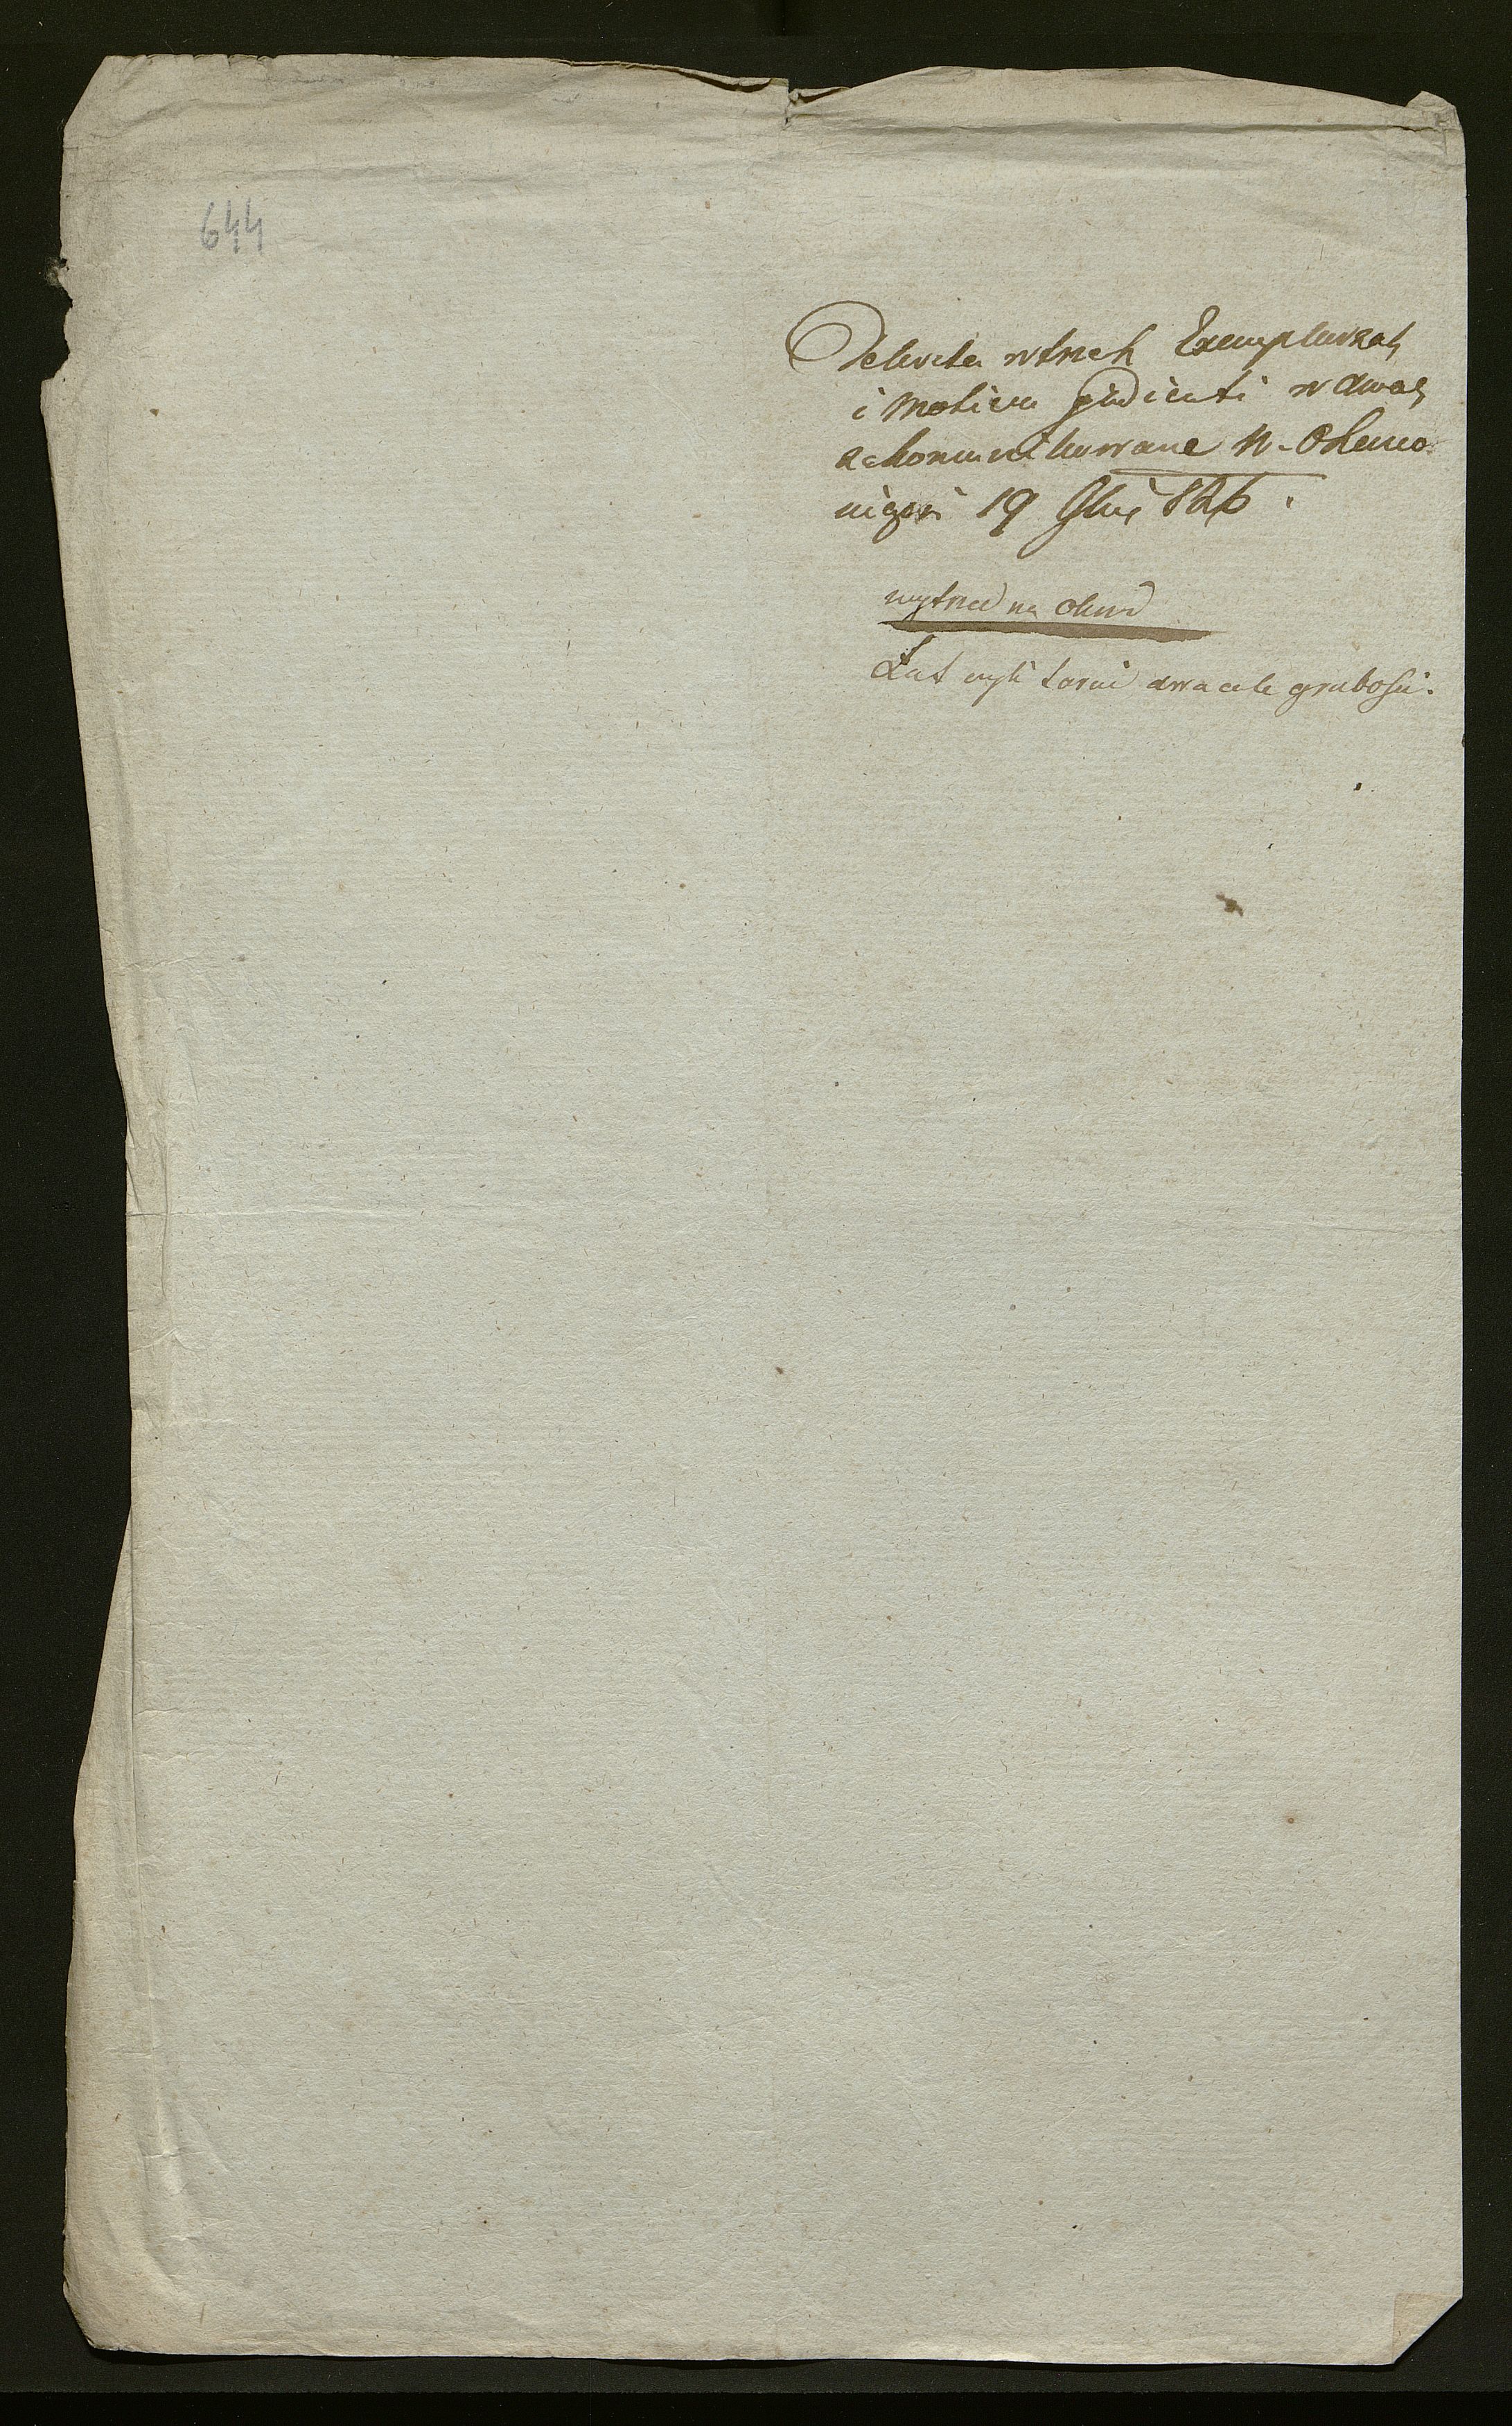 644
Dekreta w trzech Exemplarzach
i Motiva judicati w dwoch
zakomunikowane W. Okmio
19 826.
wytrzeć na okna
Łat czyli tarcic dwa cale grubości.